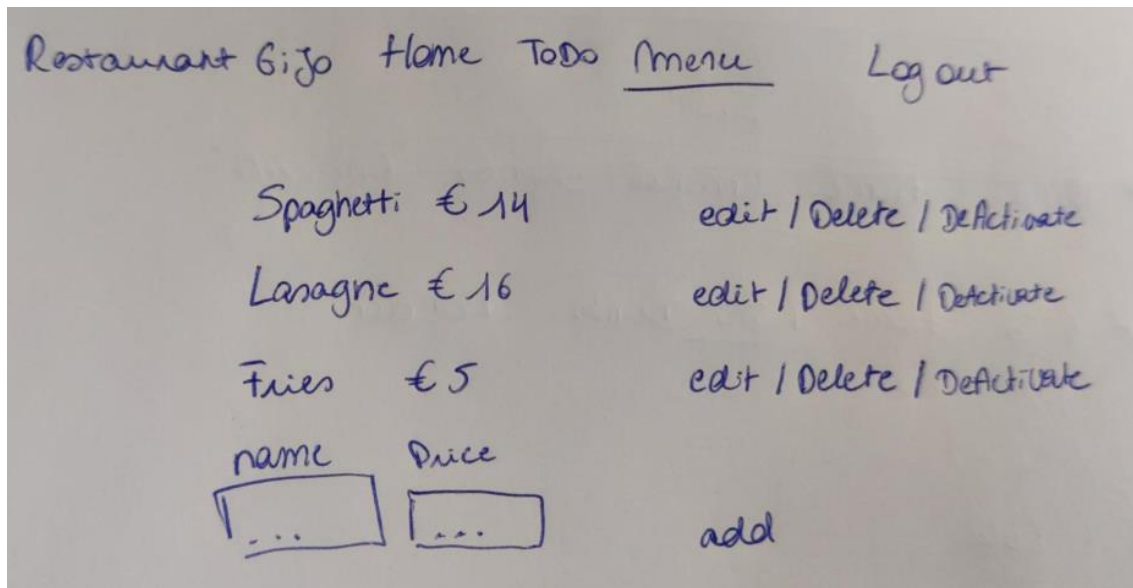 Restaurant GiJo Home ToDo Menu Log out
Spaghetti € 14 edit / Delete / DeActivate
Lasagne € 16 edit / Delete / DeActivate
Fries € 5 edit / Delete / DeActivate
name Price
... ... add